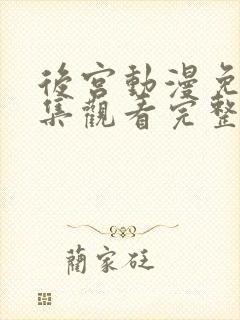 後宮動漫免
集觀看完整
藺家廷